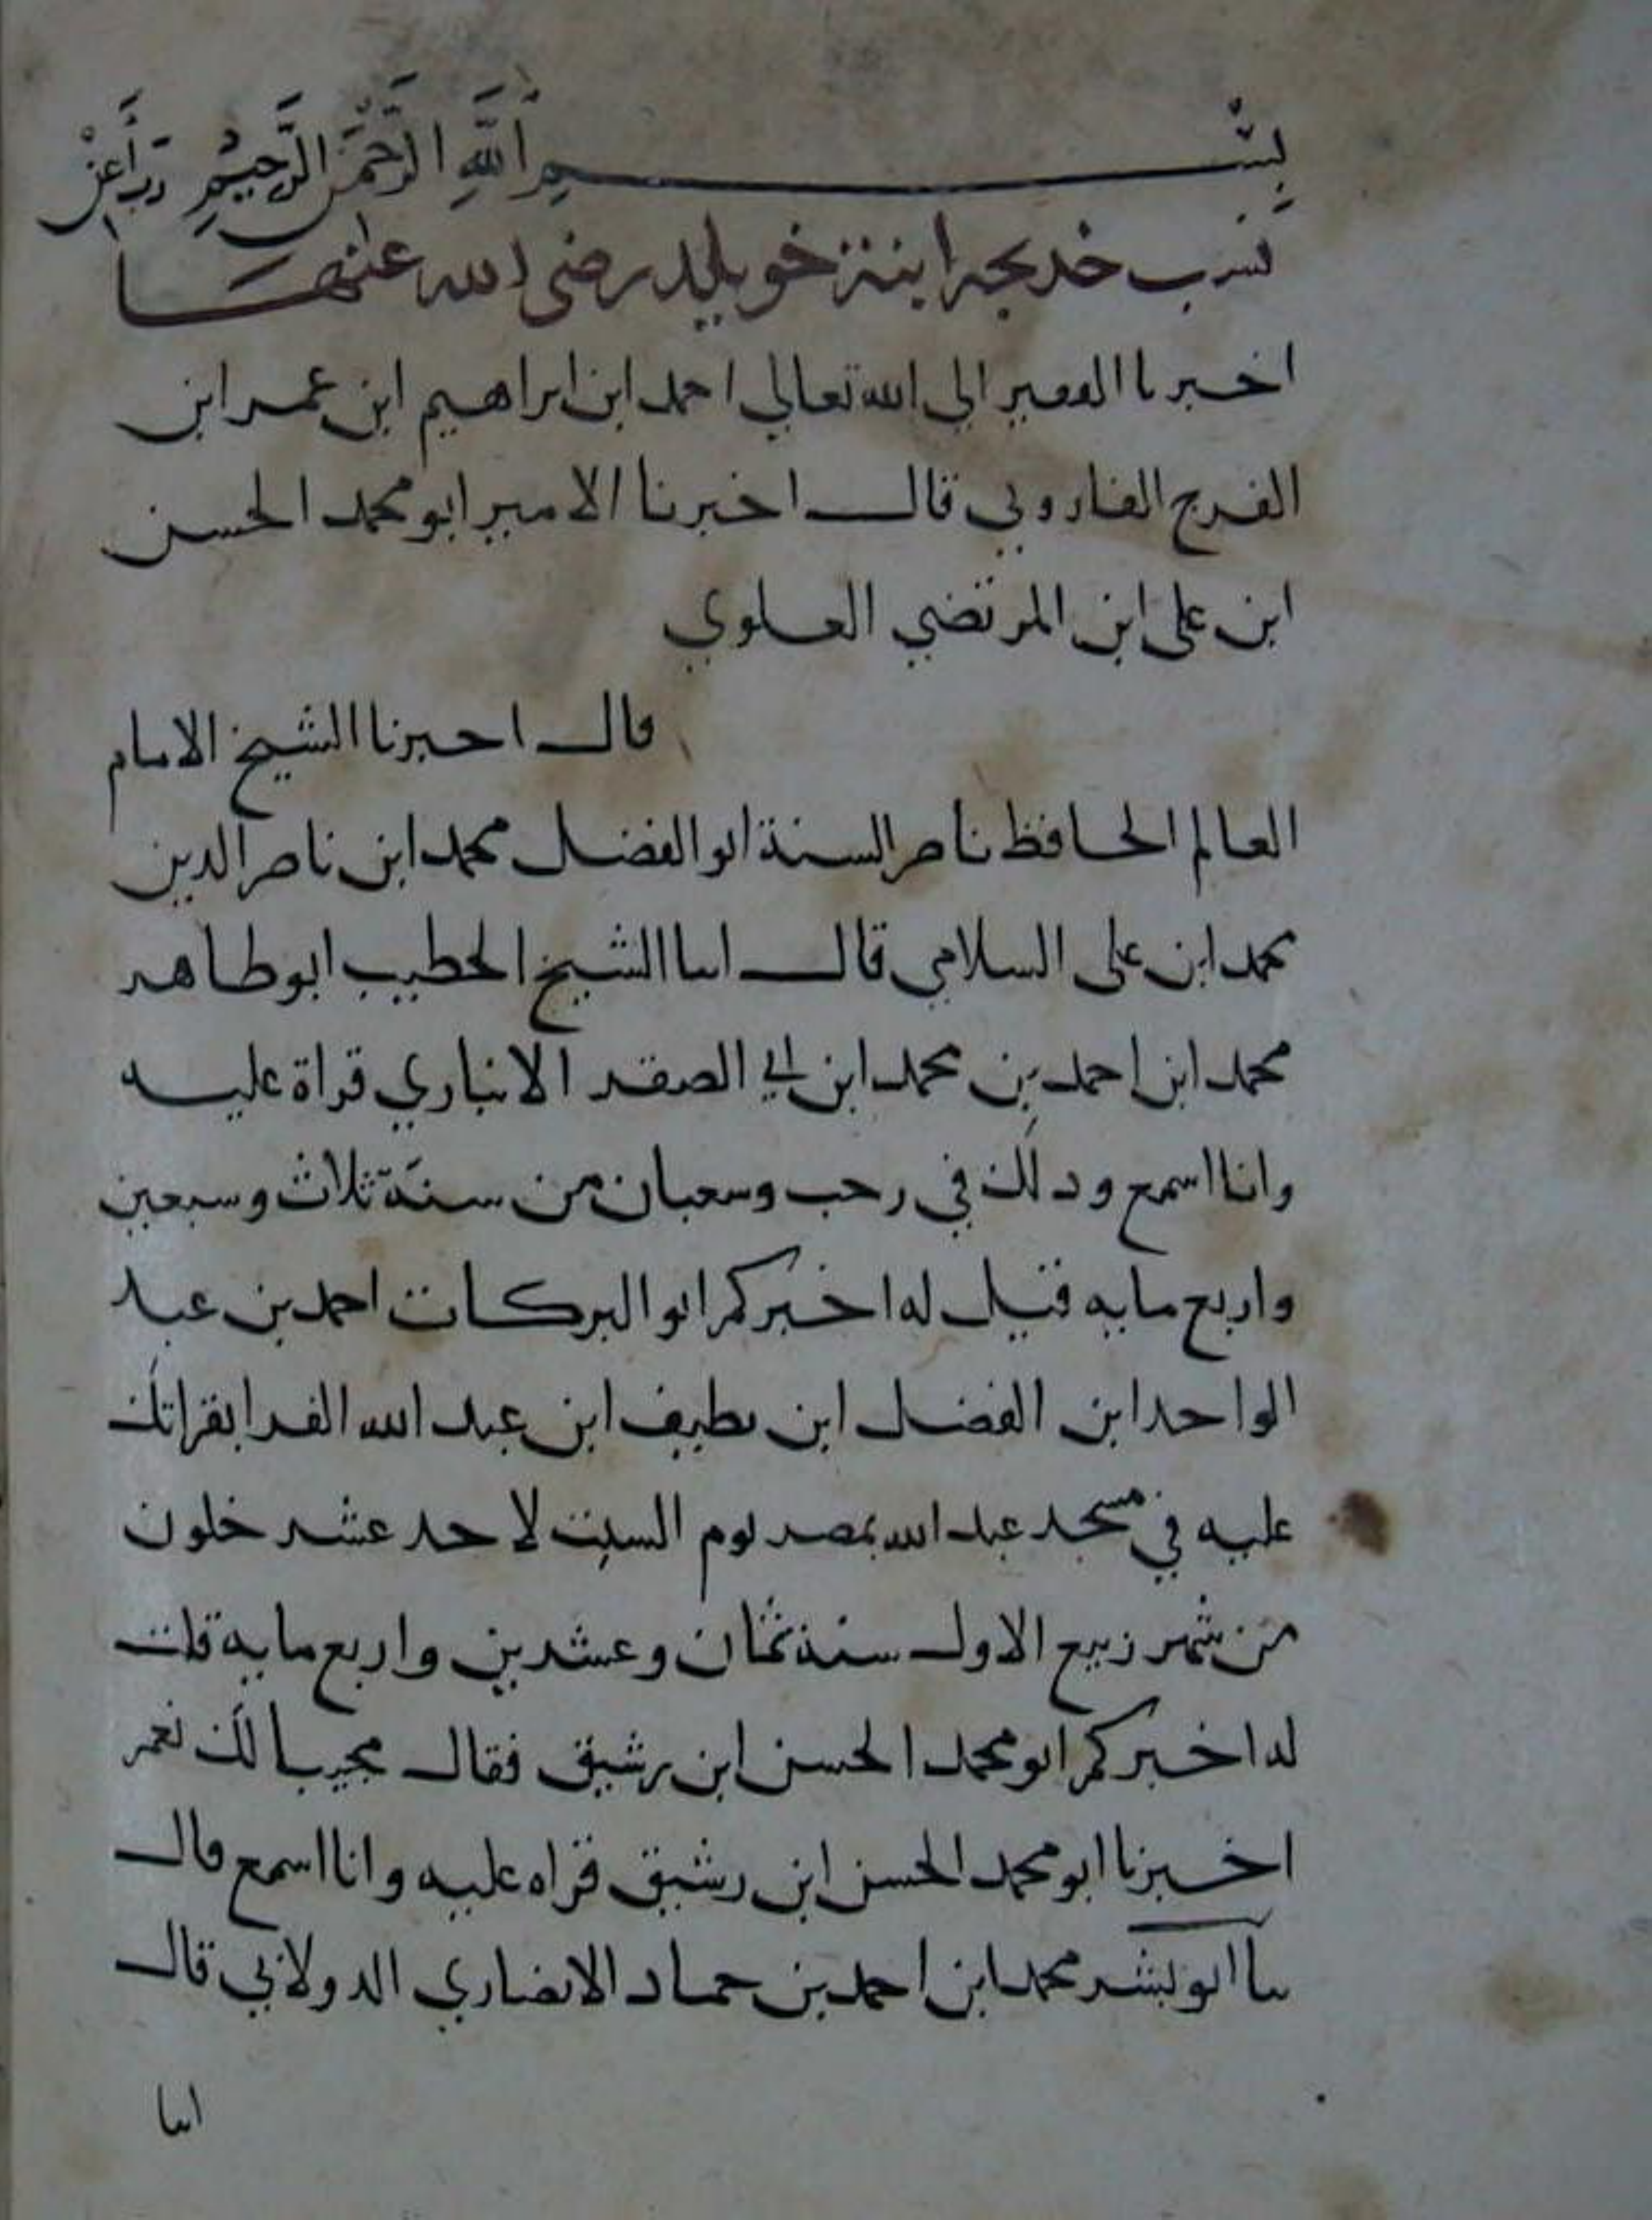 بِسْمِ اللَّهِ الرَّحْمَنِ الرَّحِيمِ رَبِّ أَعِنْ
نسب خديجة ابنة خويلد رضى الله عنها
اخبرنا الفقير الى الله تعالي احمد ابن ابراهيم ابن عمر ابن
الفرج الفاروثي قال اخبرنا الامير ابو محمد الحسن
ابن على ابن المرتضي العلوي
قال اخبرنا الشيخ الامام
العالم الحافظ ناصر السنة ابو الفضل محمد ابن ناصر الدين
محمد ابن على السلامي قال انبا الشيخ الخطيب ابو طاهر
محمد ابن احمد بن محمد ابن ابي الصقر الانباري قراة عليه
وانا اسمع وذلك في رجب وشعبان من سنة ثلاث وسبعين
واربع مايه فقيل له اخبركم ابو البركات احمد بن عبد
الواحد ابن الفضل ابن نظيف ابن عبد الله الفرا بقراتك
عليه في مسجد عبد الله بمصر يوم السبت لاحد عشر خلون
من شهر ربيع الاول سنة ثمان وعشرين واربع مايه قلت
له اخبركم ابو محمد الحسن ابن رشيق فقال مجيبا لك نعم
اخبرنا ابو محمد الحسن ابن رشيق قراه عليه وانا اسمع قال
ثنا ابو بشر محمد ابن احمد بن حماد الانصاري الدولابي قال
انبا